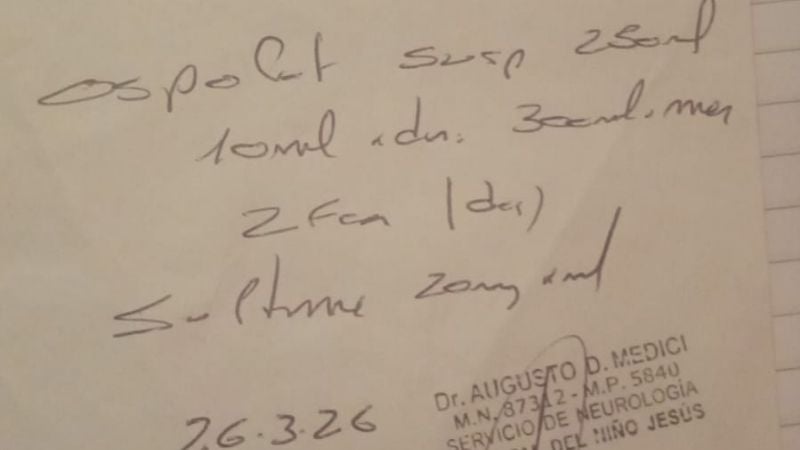 Ospolot susp 250ml
10ml x día. 300ml. mes
2 Fcos (dos)
Sultiame 20mg x ml
26.3.26
Dr. AUGUSTO D. MEDICI
M.N. 87312 - M.P. 5840
SERVICIO DE NEUROLOGÍA
DEL NIÑO JESÚS